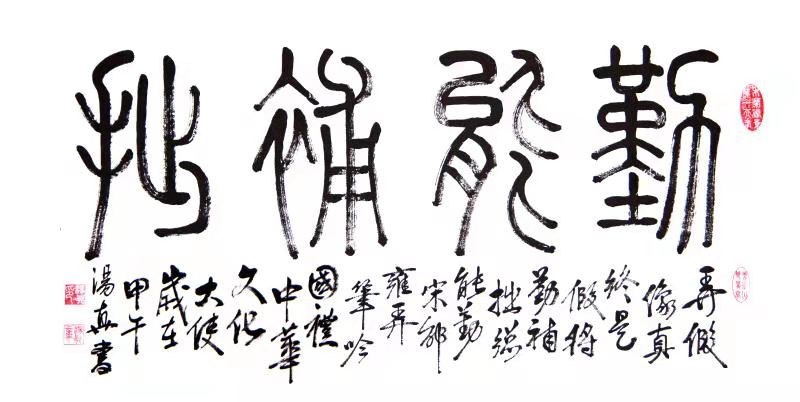 勤能補拙
弄假
像真
終是
假將
勤補
拙總
能勤
宋邵
雍弄
筆吟
國禮
中華
文化
大使
歲在
甲午
湯真書